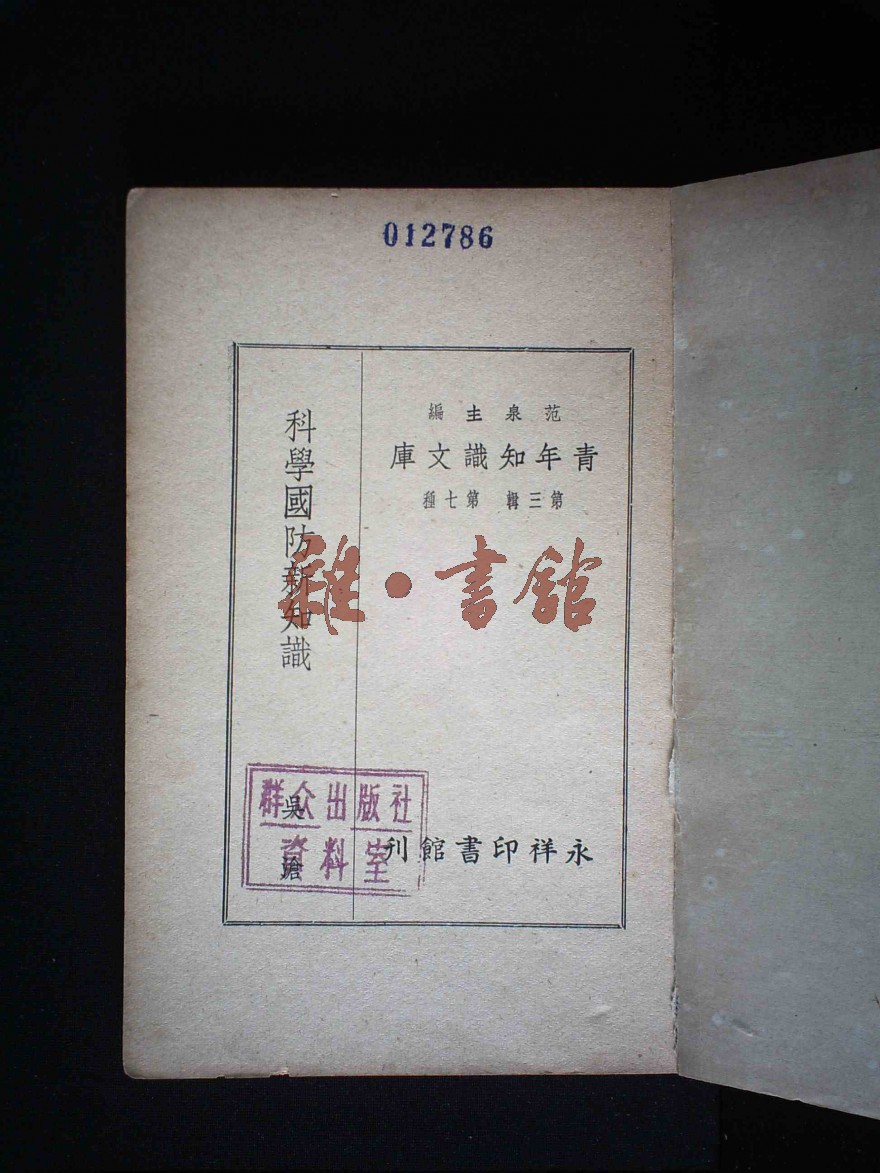 012786
范泉主編
青年知識文庫
第三輯 第七種
科學國防新知識
吳滄
永祥印書館刊
群众出版社
資料室
雜·書館